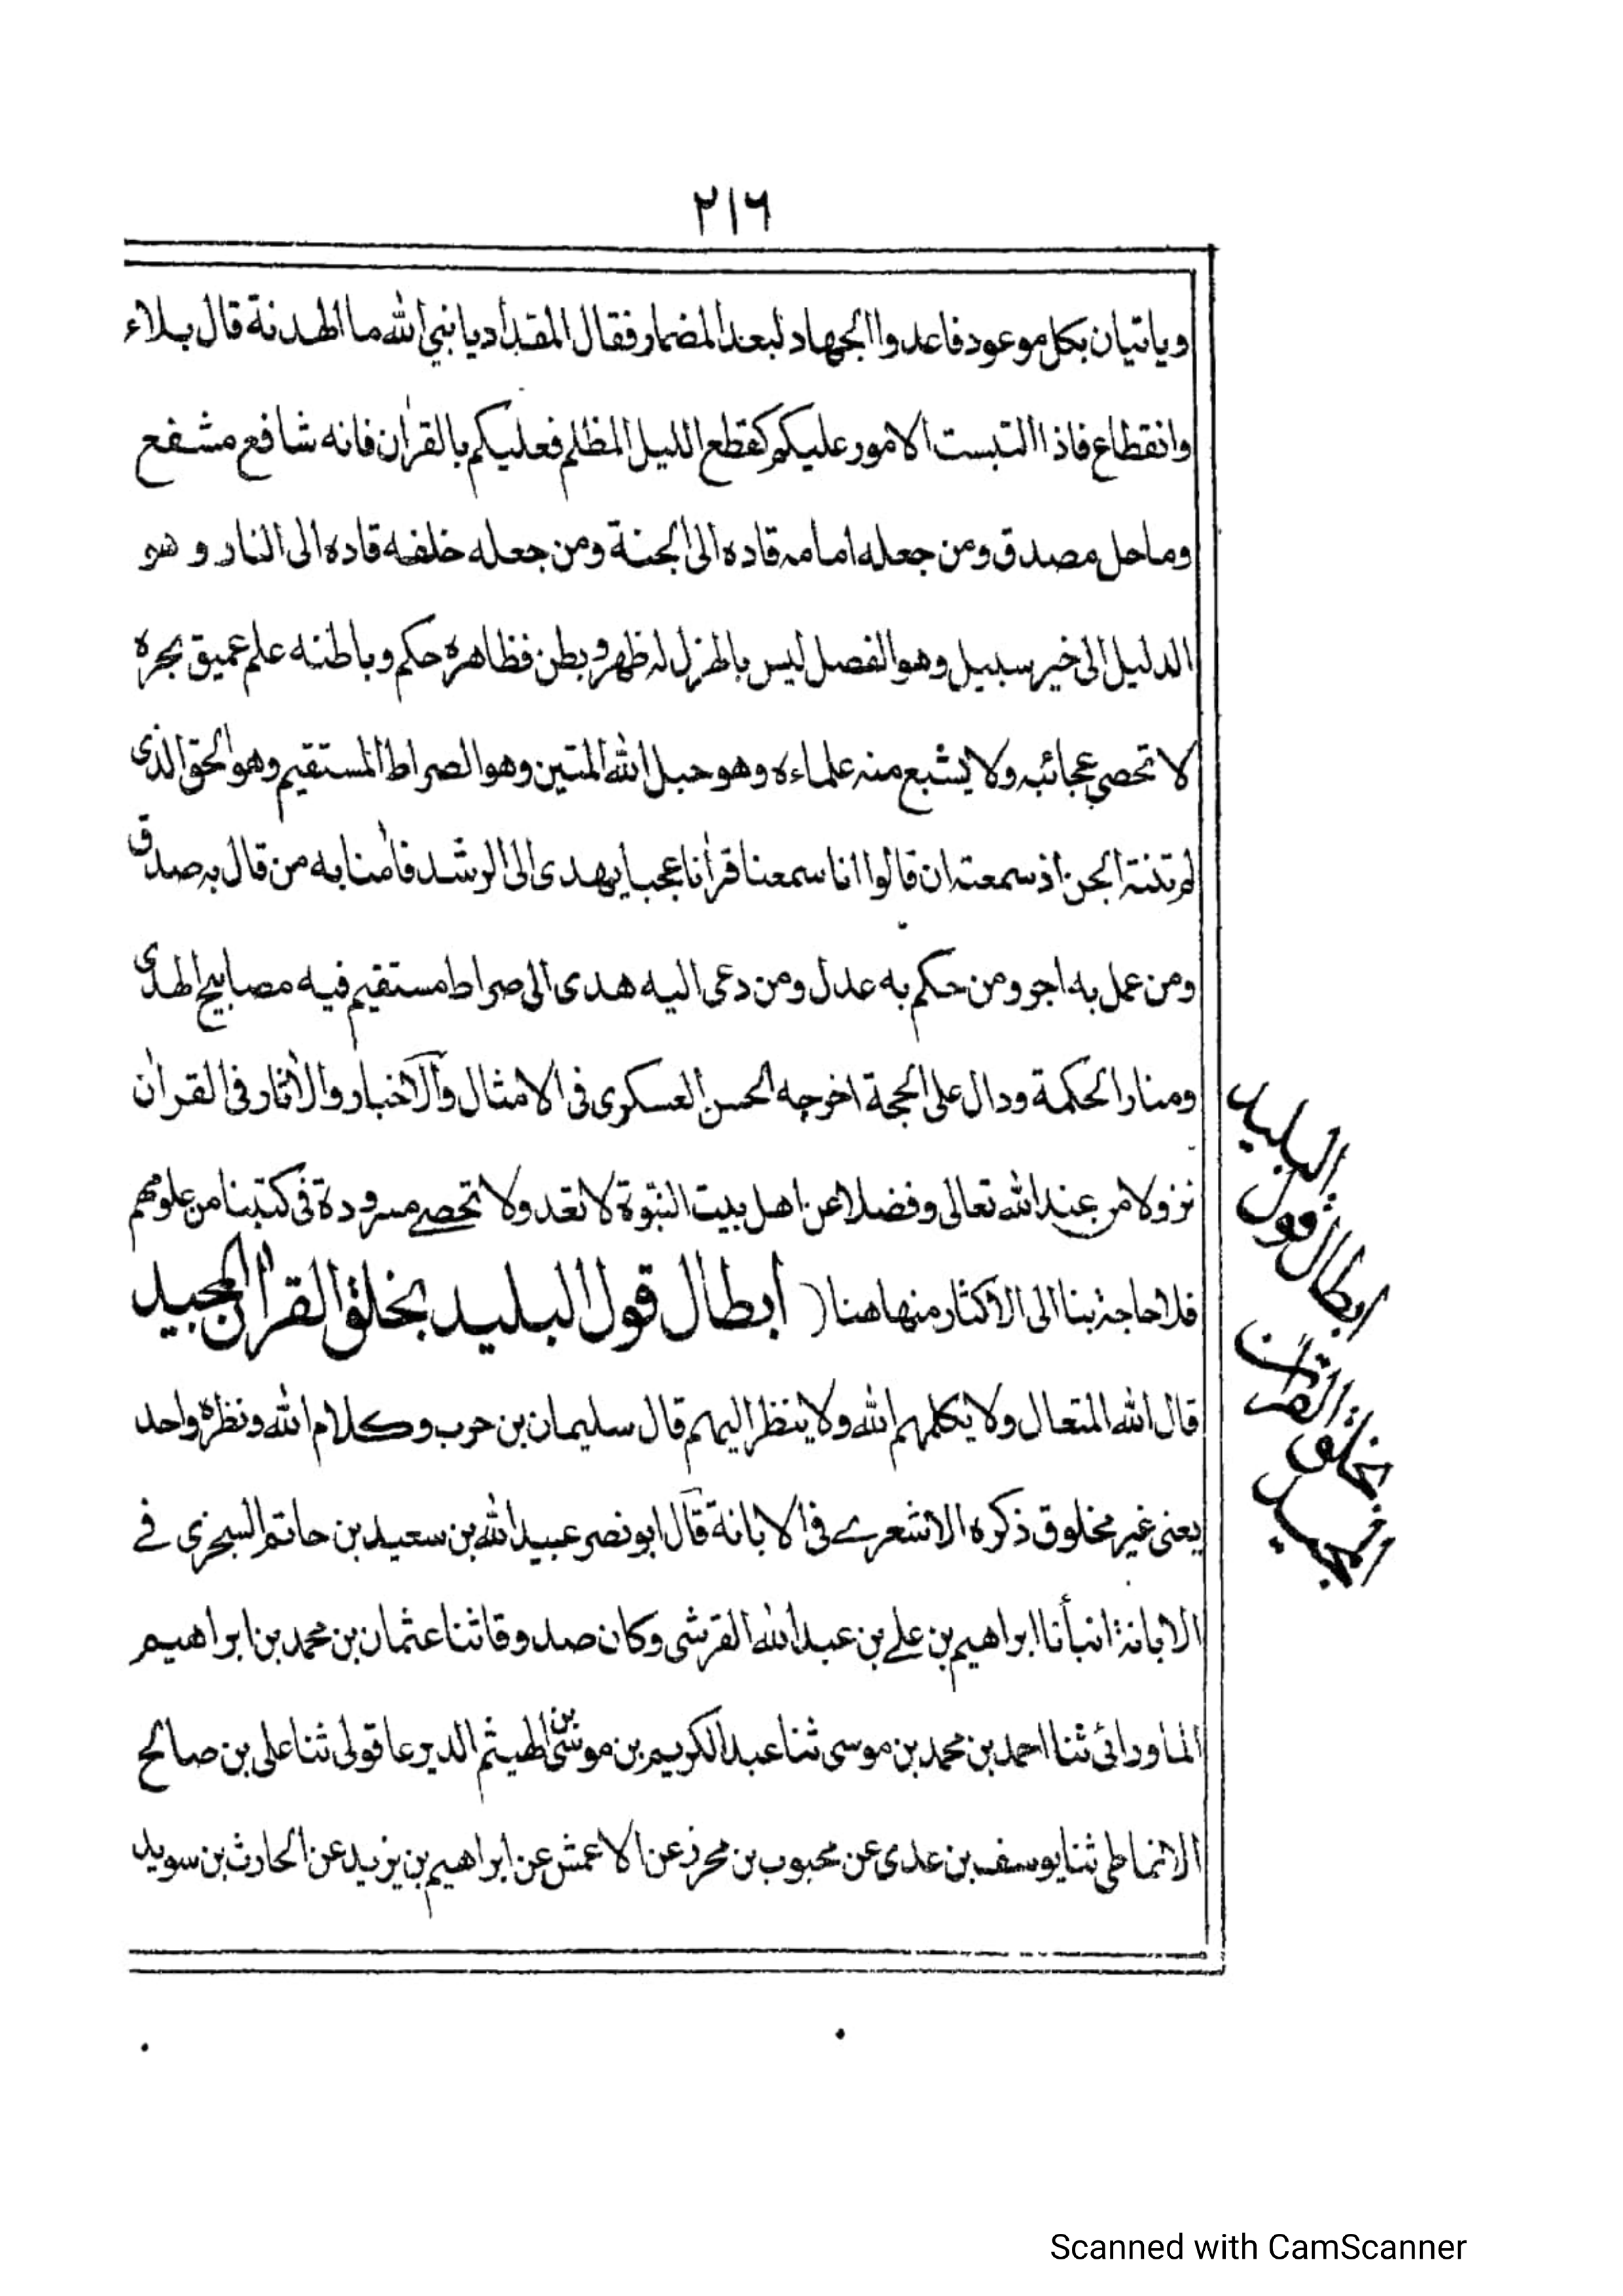 ٢١٦
وياتيان بكل موعود فاعدوا الجهاد لبعد المضمار فقال المقداد يا نبي الله ما الهدنة قال بلاء
وانقطاع فاذا التبست الامور عليكم كقطع الليل المظلم فعليكم بالقرآن فانه شافع مشفع
وماحل مصدق ومن جعله امامه قاده الى الجنة ومن جعله خلفه قاده الى النار وهو
الدليل الى خير سبيل وهو الفصل ليس بالهزل له ظهر وبطن فظاهره حكم وباطنه علم عميق بحره
لا تحصى عجائبه ولا يشبع منه علماءه وهو حبل الله المتين وهو الصراط المستقيم وهو الحق الذى
لم تنته الجن اذ سمعته ان قالوا انا سمعنا قرآنا عجبا يهدى الى الرشد فآمنا به من قال به صدق
ومن عمل به اجر ومن حكم به عدل ومن دعى اليه هدى الى صراط مستقيم فيه مصابيح الهدى
ومنار الحكمة ودال على الحجة اخرجه الحسن العسكرى فى الامثال والاخبار والاثار فى القرآن
نزولا من عند الله تعالى وفضلا عن اهل بيت النبوة لا تعد ولا تحصے مسرودة فى كتبنا من علومهم
فلا حاجة بنا الى الاكثار منها هنا ( ابطال قول البليد بخلق القرآن المجيد
قال الله المتعال ولا يكلمهم الله ولا ينظر اليهم قال سليمان بن حرب وكلام الله ونظره واحد
يعنى غير مخلوق ذكره الاشعرے فى الابانة قال ابو نصر عبيد الله بن سعيد بن حاتم السجزى فے
الابانة انبأنا ابراهيم بن علے بن عبد الله القرشى وكان صدوقا ثنا عثمان بن محمد بن ابراهيم
الماورائى ثنا احمد بن محمد بن موسى ثنا عبد الكريم بن موسى بن الهيثم الديرعاقولى ثنا على بن صالح
الانماطى ثنا يوسف بن عدى عن محبوب بن محرز عن الاعمش عن ابراهيم بن يزيد عن الحارث بن سويد
ابطال قول البليد
بخلق القرآن
المجيد
Scanned with CamScanner